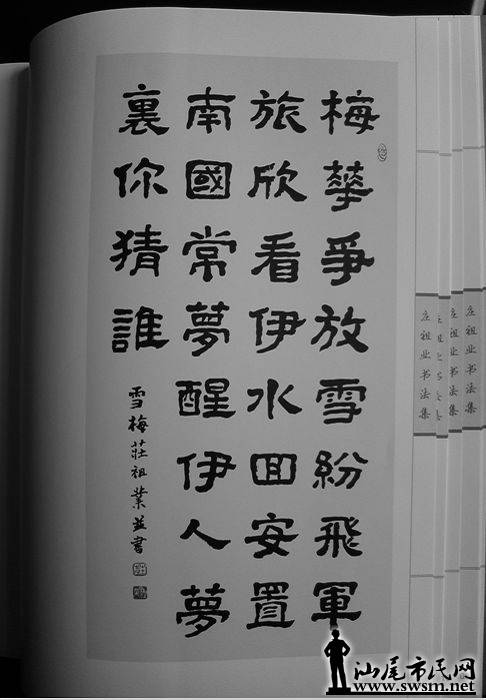 梅華爭放雪紛飛軍
旅欣看伊水回安置
南國常夢醒伊人夢
裏你猜誰
雪梅莊祖業並書
庄祖业书法集
庄祖业书法集
庄祖业书法集
汕尾市民网
www.swsm.net